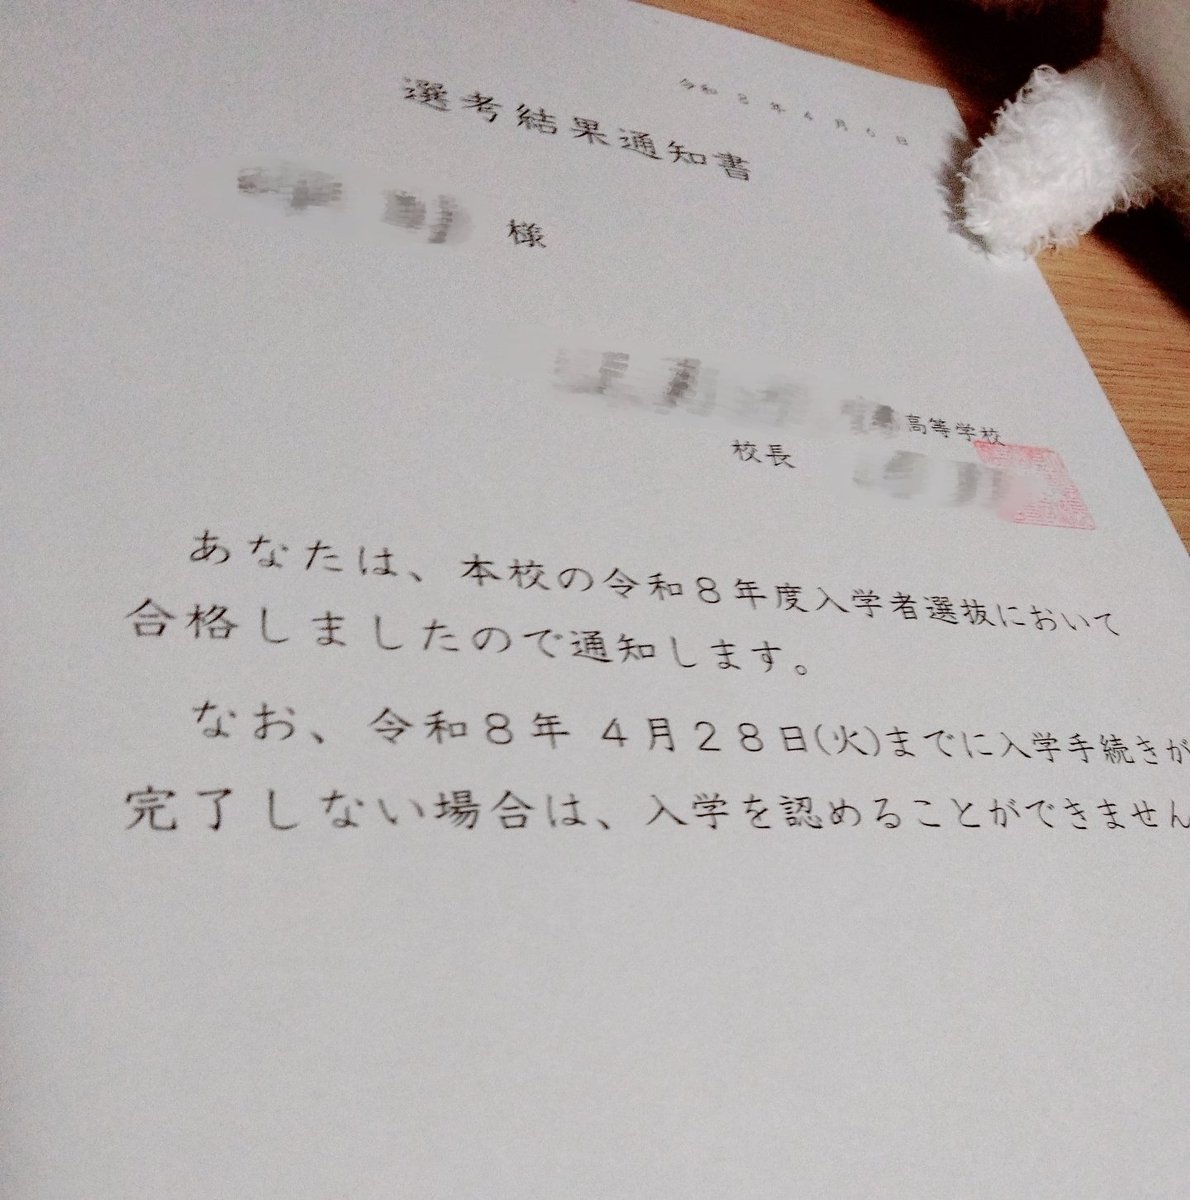 令和8年4月6日
選考結果通知書
様
高等学校
校長
あなたは、本校の令和8年度入学者選抜において
合格しましたので通知します。
なお、令和8年 4月28日(火)までに入学手続きが
完了しない場合は、入学を認めることができません